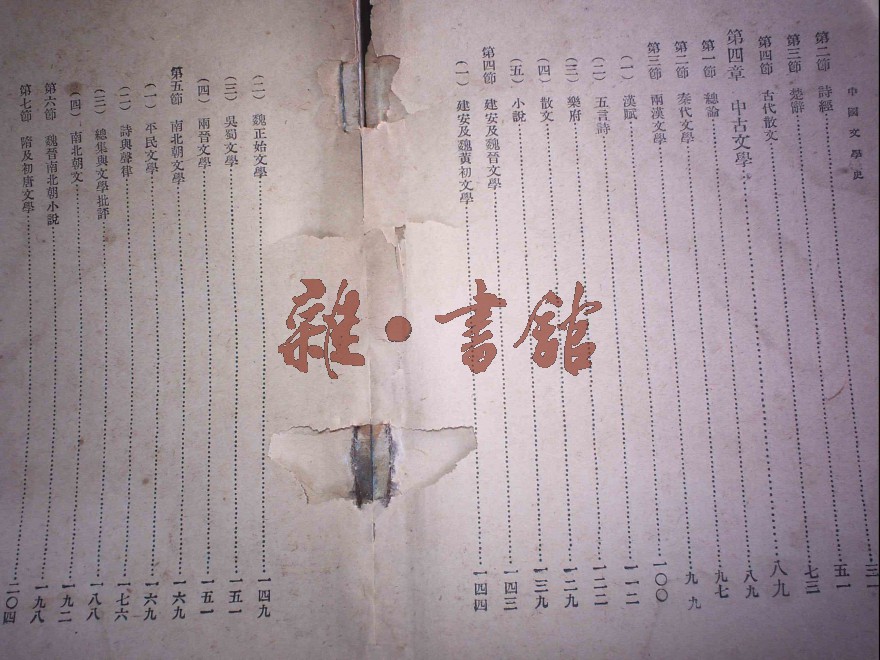 中國文學史
第二節 詩經……三一
第三節 楚辭……五一
第四節 古代散文……七三
第四章 中古文學……八九
第一節 總論……八九
第二節 秦代文學……九七
第三節 兩漢文學……九九
（一）漢賦……一〇〇
（二）五言詩……一一二
（三）樂府……一二二
（四）散文……一二九
（五）小說……一三九
第四節 建安及魏晉文學……一四三
（一）建安及魏黃初文學……一四四
（二）魏正始文學……一四九
（三）吳蜀文學……一五一
（四）兩晉文學……一五一
第五節 南北朝文學……一六九
（一）平民文學……一六九
（二）詩與聲律……一七六
（三）總集與文學批評……一八八
（四）南北朝文……一九二
第六節 魏晉南北朝小說……一九八
第七節 隋及初唐文學……二〇四
雜·書館